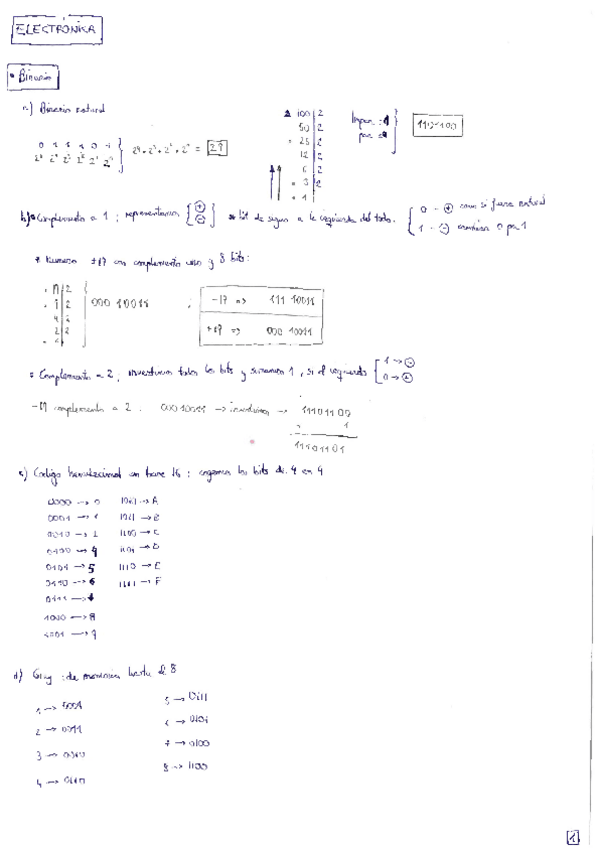 ELECTRÓNICA
• Binario
a) Binario natural
0 1 1 1 0 1
2⁵ 2⁴ 2³ 2² 2¹ 2⁰
2⁴ + 2³ + 2² + 2⁰ = 29
100 | 2
50 | 2
25 | 2
12 | 2
6 | 2
3 | 2
1
Impar = 1
par = 0
1100100
b) Complemento a 1 ; representamos + - bit de signo a la izquierda del todo.
0 - + como si fuera natural
1 - - cambiar 0 por 1
* Numero ±19 con complemento uno y 8 bits:
2
000 10011 ;
-19 => 111 01100
+19 => 000 10011
* Complemento a 2 ; invertimos todos los bits y sumamos 1, si el izquierdo
1 → -
0 → +
-19 complemento a 2 : 00010011 → invertimos → 11101100
1
11101101
c) Codigo hexadecimal en base 16 : cogemos los bits de 4 en 4
0000 → 0
0001 → 1
0010 → 2
0100 → 4
0101 → 5
0110 → 6
0111 → 7
1000 → 8
1001 → 9
→ A
1011 → B
1100 → C
1101 → D
1110 → E
1111 → F
d) Gray : de memoria hasta el 8
1 → 0001
2 → 0011
3 → 0010
4 → 0110
5 → 0111
6 → 0101
7 → 0100
8 → 1100
1